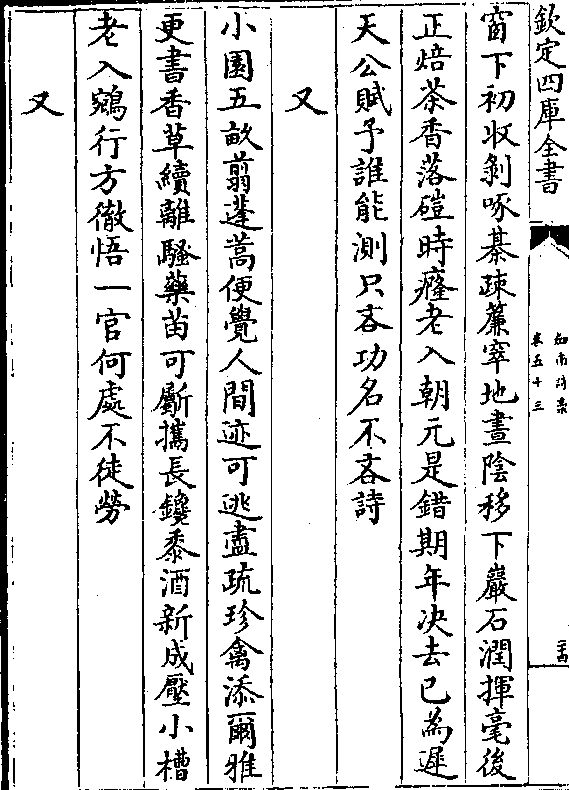 欽定四庫全書
劔南詩稾
卷五十三
窗下初收剝啄棊疎簾窣地晝陰移下巖石潤揮毫後
正焙茶香落磑時癃老入朝元是錯期年决去已為遲
天公賦予誰能測只吝功名不吝詩
又
小園五畝翦蓬蒿便覺人間迹可逃盡疏珍禽添爾雅
更書香草續離騷藥苗可斸攜長鑱黍酒新成壓小槽
老入鵷行方徹悟一官何處不徒勞
又